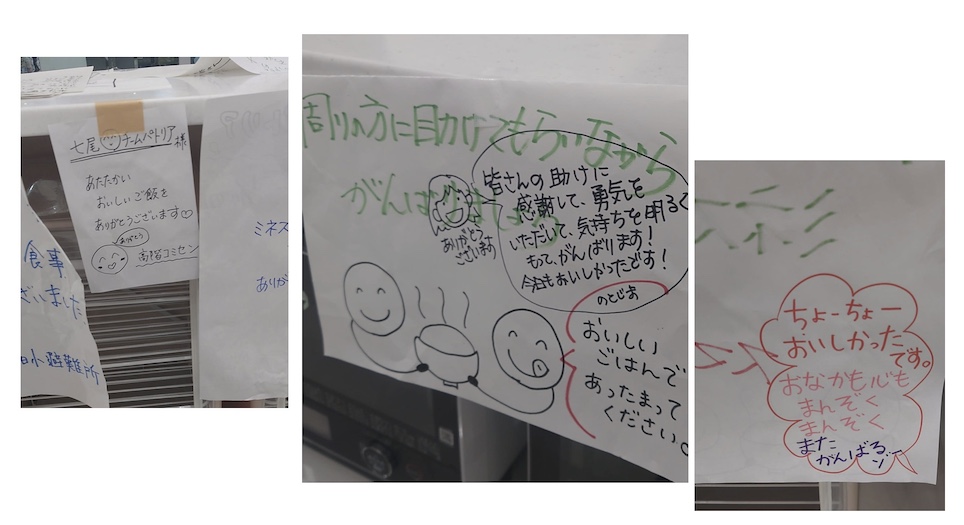 七尾 チームパトリア様
あたたかい
おいしいご飯を
ありがとうございます♡
ありがとう
高階コミセン
食事
ざいました
小避難所
ミネス
ありが
周りの方に助けてもらいながら
がんばり
皆さんの助けに
感謝して、勇気を
いただいて、気持ちを明るく
もって、がんばります!
今日もおいしかったです!
のとじま
ありがとう
ございます
おいしい
ごはんで
あったまって
ください。
ちょーちょー
おいしかった
です。
おなかも心も
まんぞく
まんぞく
また
がんばるゾー